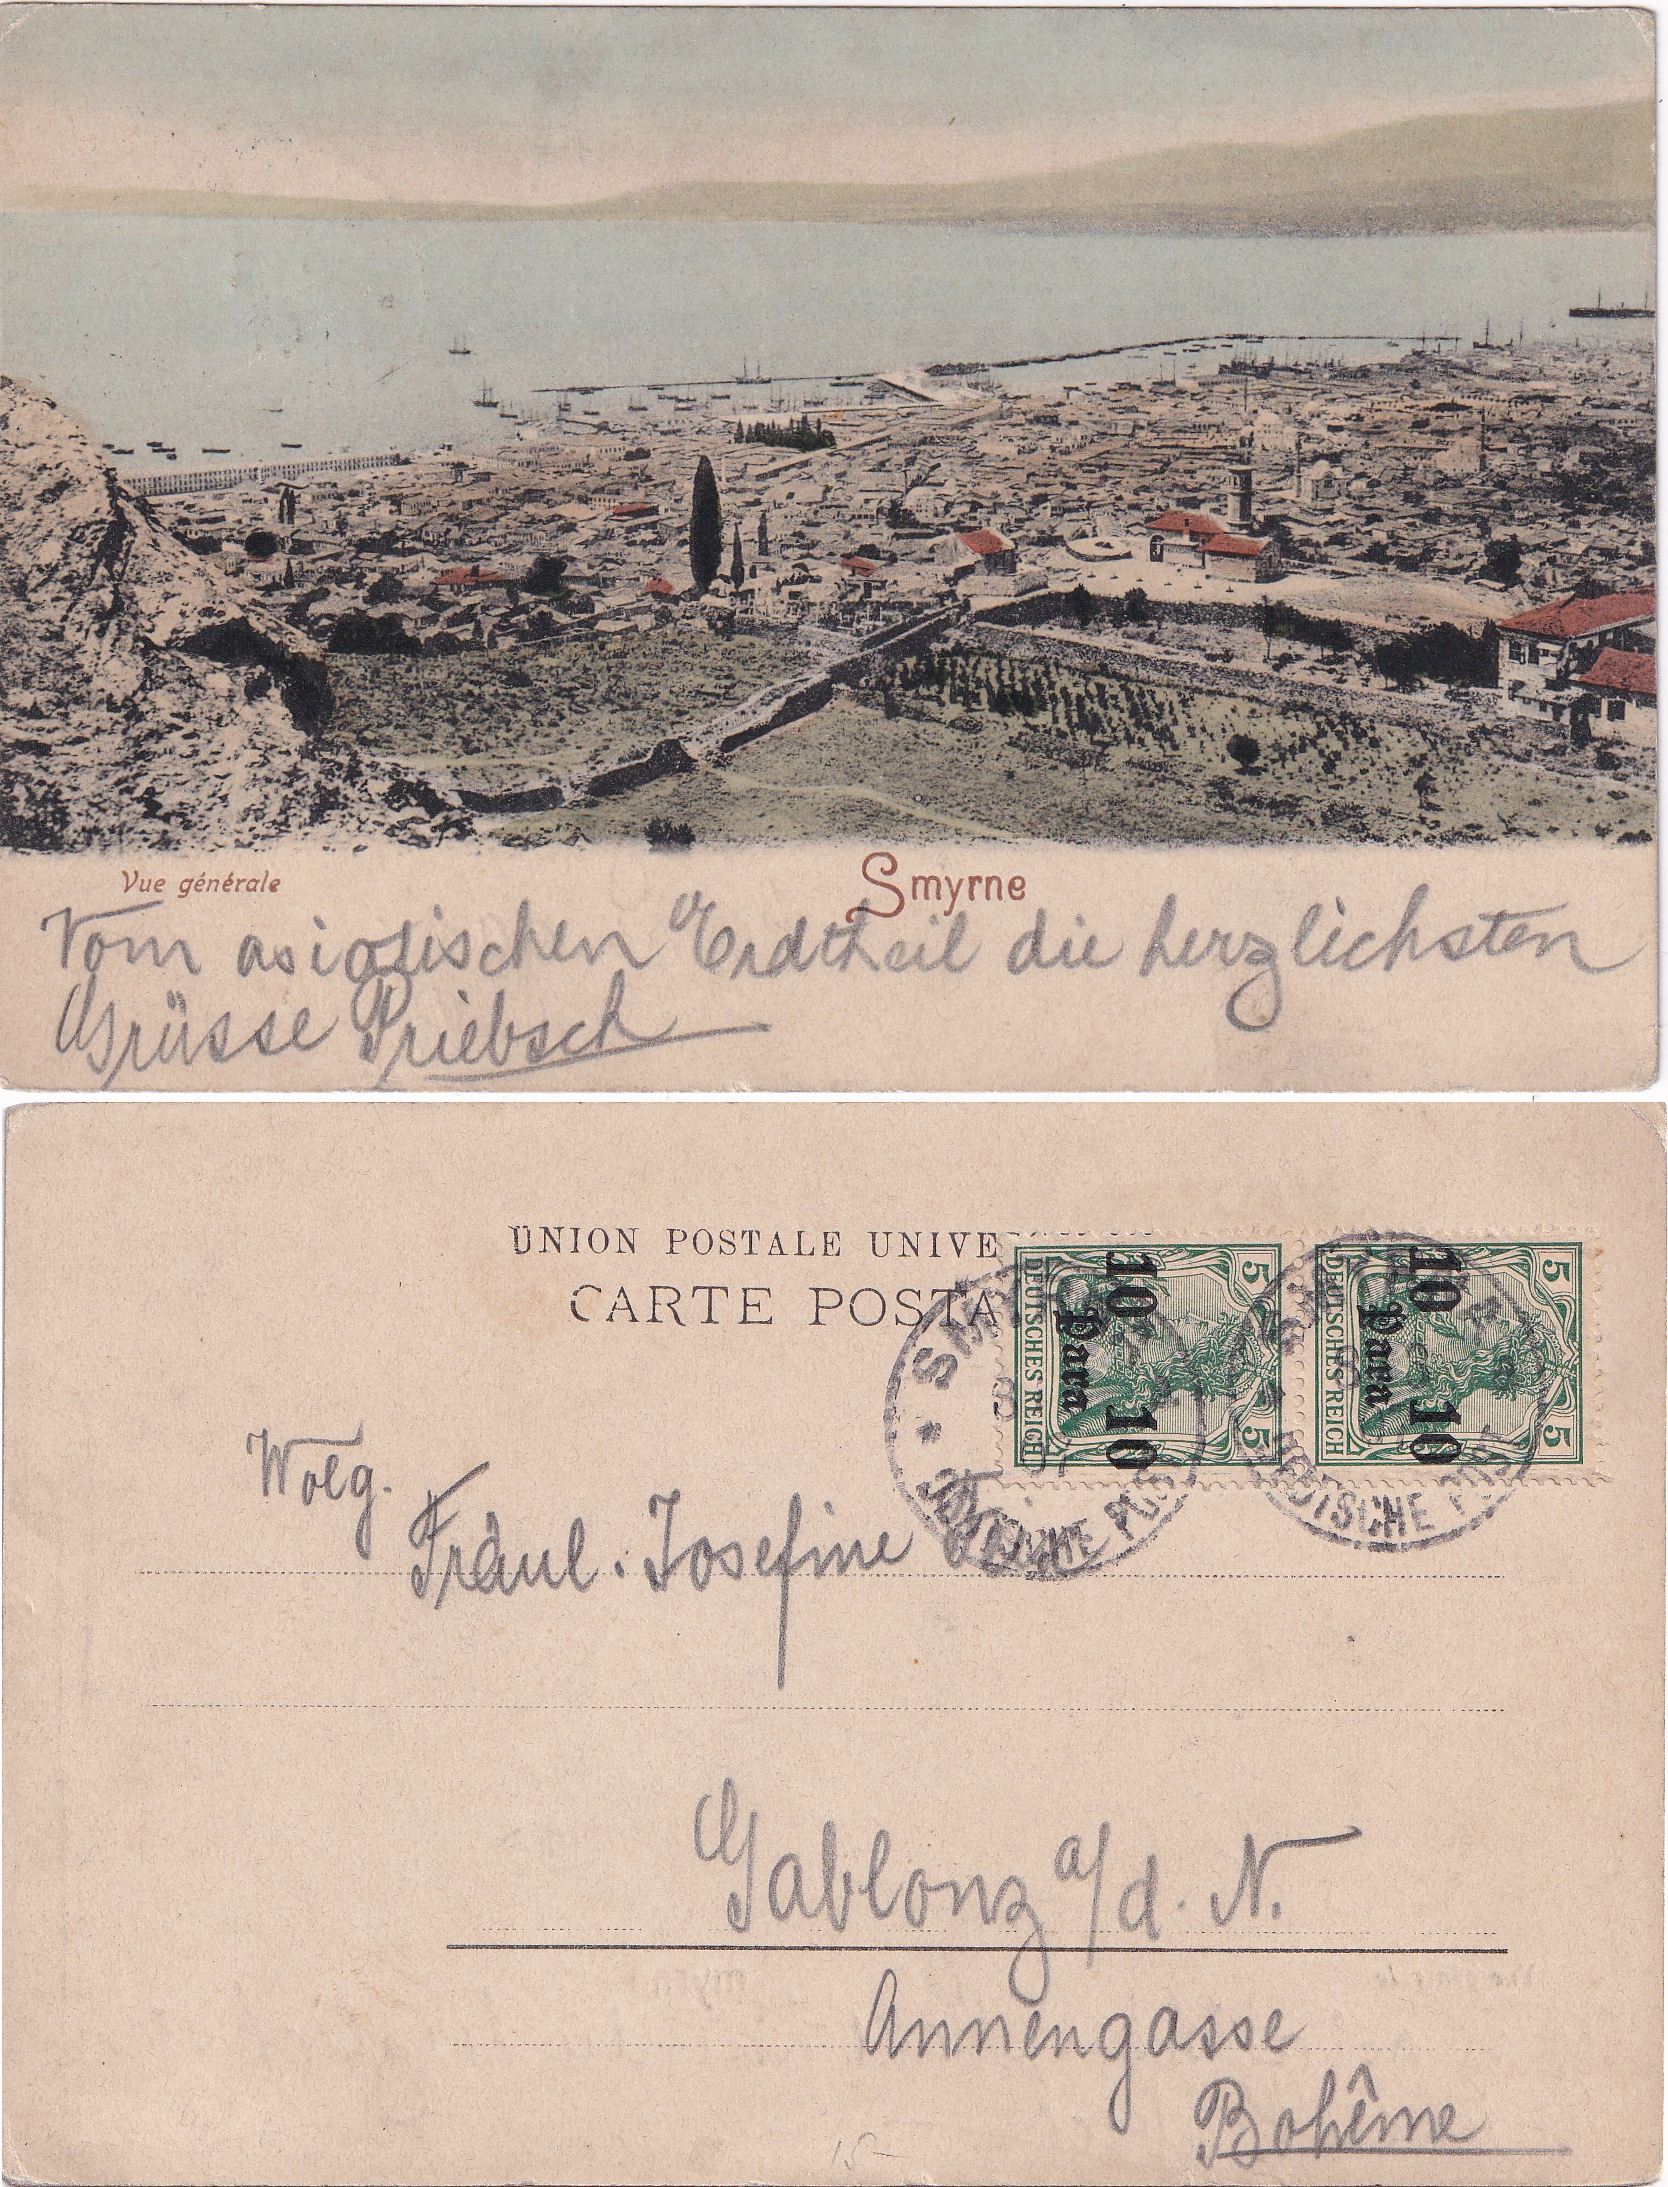 Vue générale
Smyrne
Vom asiatischen Erdtheil die herzlichsten
Grüsse Priebsch
UNION POSTALE UNIVE
CARTE POSTA
10 Para 10
DEUTSCHES REICH
5 5
10 Para 10
DEUTSCHES REICH
5 5
DEUTSCHE POST
Wolg.
Fräul. Josefine
Gablonz a/d. N.
Annengasse
Bohême
15-